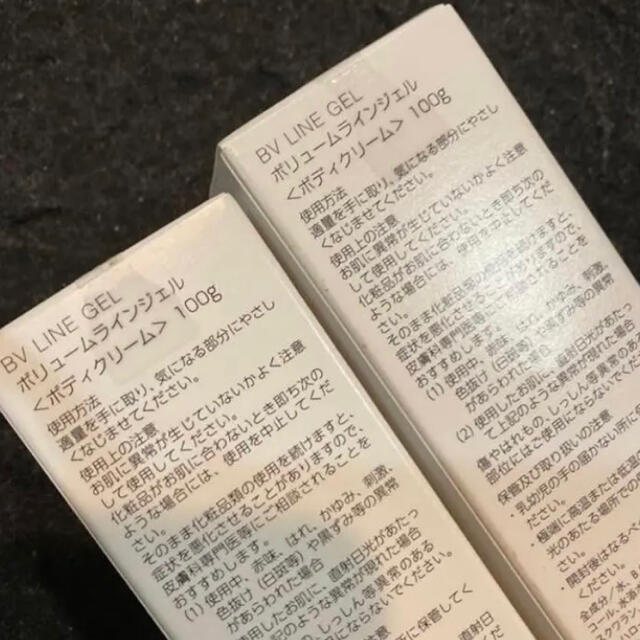 BV LINE GEL
ボリュームラインジェル
<ボディクリーム> 100g
使用方法
適量を手に取り、気になる部分にやさし
くなじませてください。
使用上の注意
お肌に異常が生じていないかよく注意
して使用してください。
化粧品がお肌に合わないとき即ち次の
ような場合には、使用を中止してくだ
そのまま化粧品類の使用を続けますと、
症状を悪化させることがありますので、
皮膚科専門医等にご相談されることを
おすすめします。
(1) 使用中、赤味、はれ、かゆみ、刺激、
色抜け(白斑等)や黒ずみ等の異常
があらわれた場合
使用したお肌に、直射日光があたっ
て上記のような異常が現れた場合
しっしん等異常のある
ないでください。
所に保管してく
直射日
BV LINE GEL
ボリュームラインジェル
<ボディクリーム> 100g
使用方法
適量を手に取り、気になる部分にやさし
くなじませてください。
使用上の注意
お肌に異常が生じていないかよく注意
して使用してください。
化粧品がお肌に合わないとき即ち次の
ような場合には、使用を中止してくだ
そのまま化粧品類の使用を続けますと、
症状を悪化させることがありますので、
皮膚科専門医等にご相談されることを
おすすめします。
(1) 使用中、赤味、はれ、かゆみ、刺激、
色抜け(白斑等)や黒ずみ等の異常
があらわれた場合
(2) 使用したお肌に、直射日光があたっ
て上記のような異常が現れた場合
傷やはれもの、しっしん等異常のある
部位にはご使用にならないでくださ
保管及び取り扱いの注意
・乳幼児の手の届かない所に
ださい。
・極端に高温または低温
光のあたる場所での
い。
・開封後はなるべ
ださい。
全成分/水、